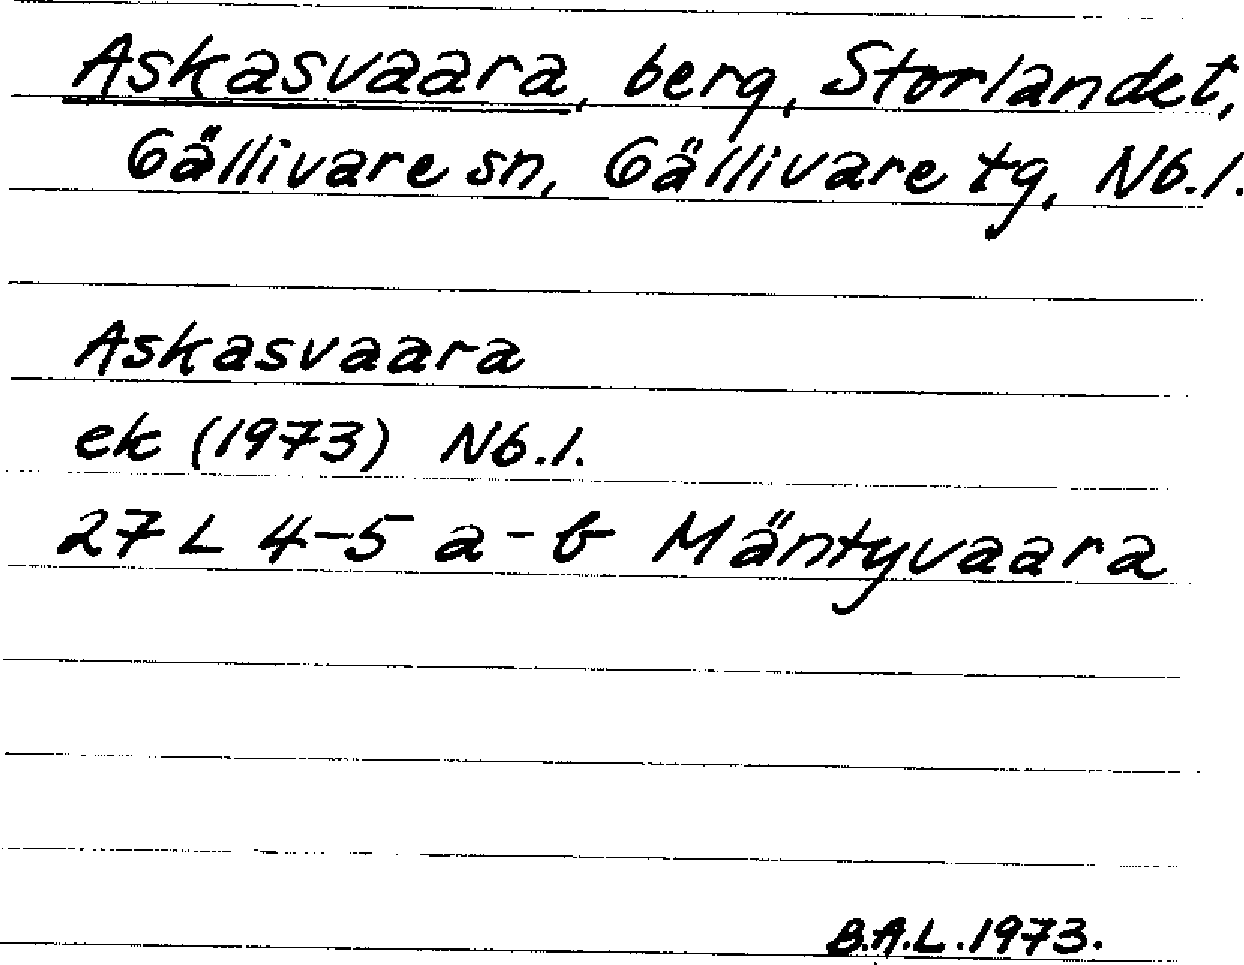 Askasvaara, berg, Storlandet,
Gällivare sn, Gällivare tg, Nb.l.
Askasvaara
ek (1973) Nb.l.
27 L 4-5 a-b Mäntyvaara
B.A.L. 1973.